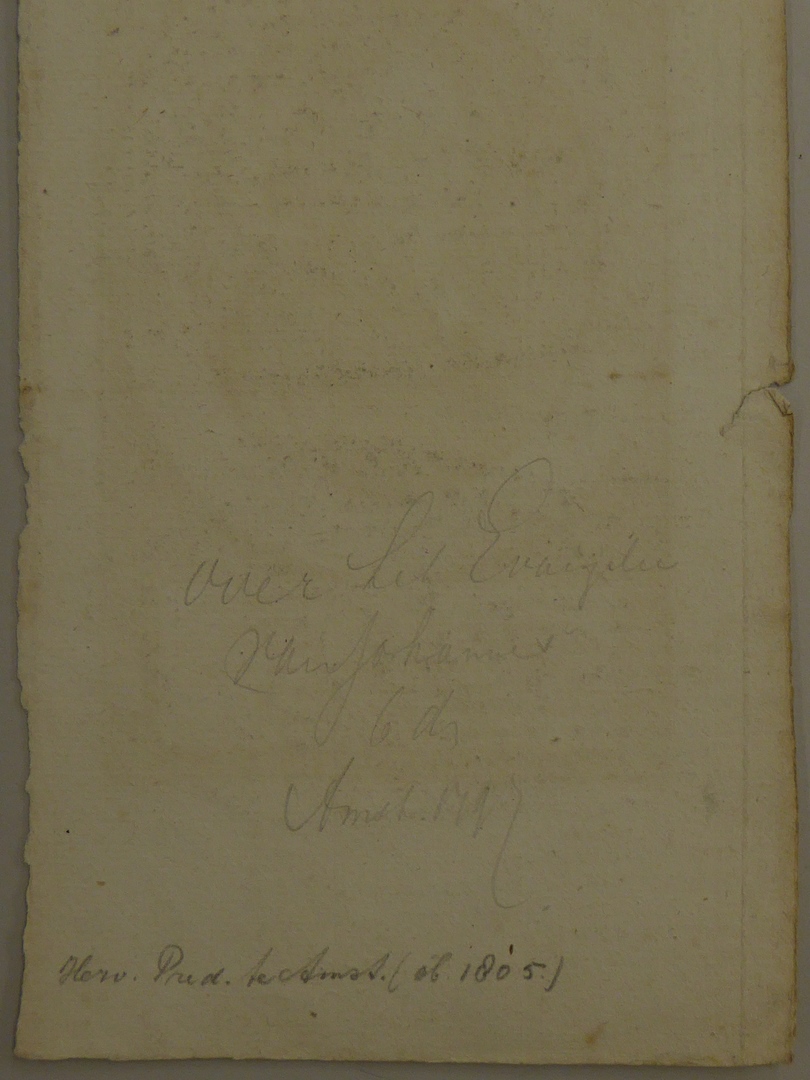 over het Evangelie
van Johannes
6 dn
Amst. 1797
Herv. Pred. te Amst. (ob. 1805.)